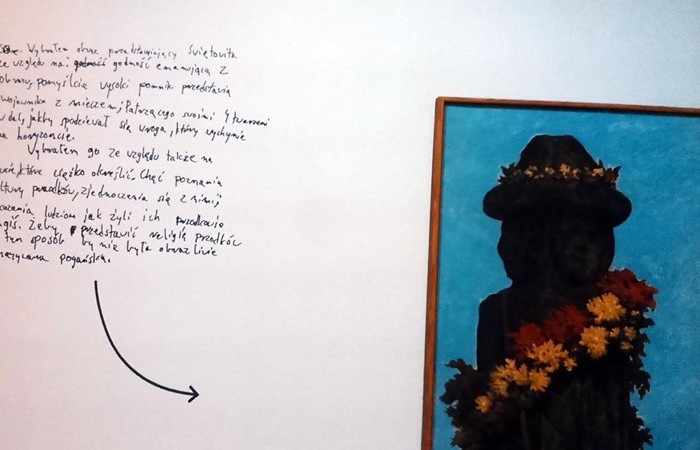 Wybrałem obraz przedstawiający Świętowita
ze względu na: godność godność emanującą z
obrazu, pomyślcie wysoki pomnik przedstawia
wojownika z mieczem; Patrzącego swoimi 4 twarzami
w dal, jakby spodziewał się wroga, który wychynie
na horyzoncie.
Wybrałem go ze względu także na
które ciężko określić. Chęć poznania
przodków, zjednoczenia się z nimi,
ludziom jak żyli ich przodkowie
Żeby przedstawić religię przodków
ten sposób by nie była obraźliwie
nazywana pogańską.